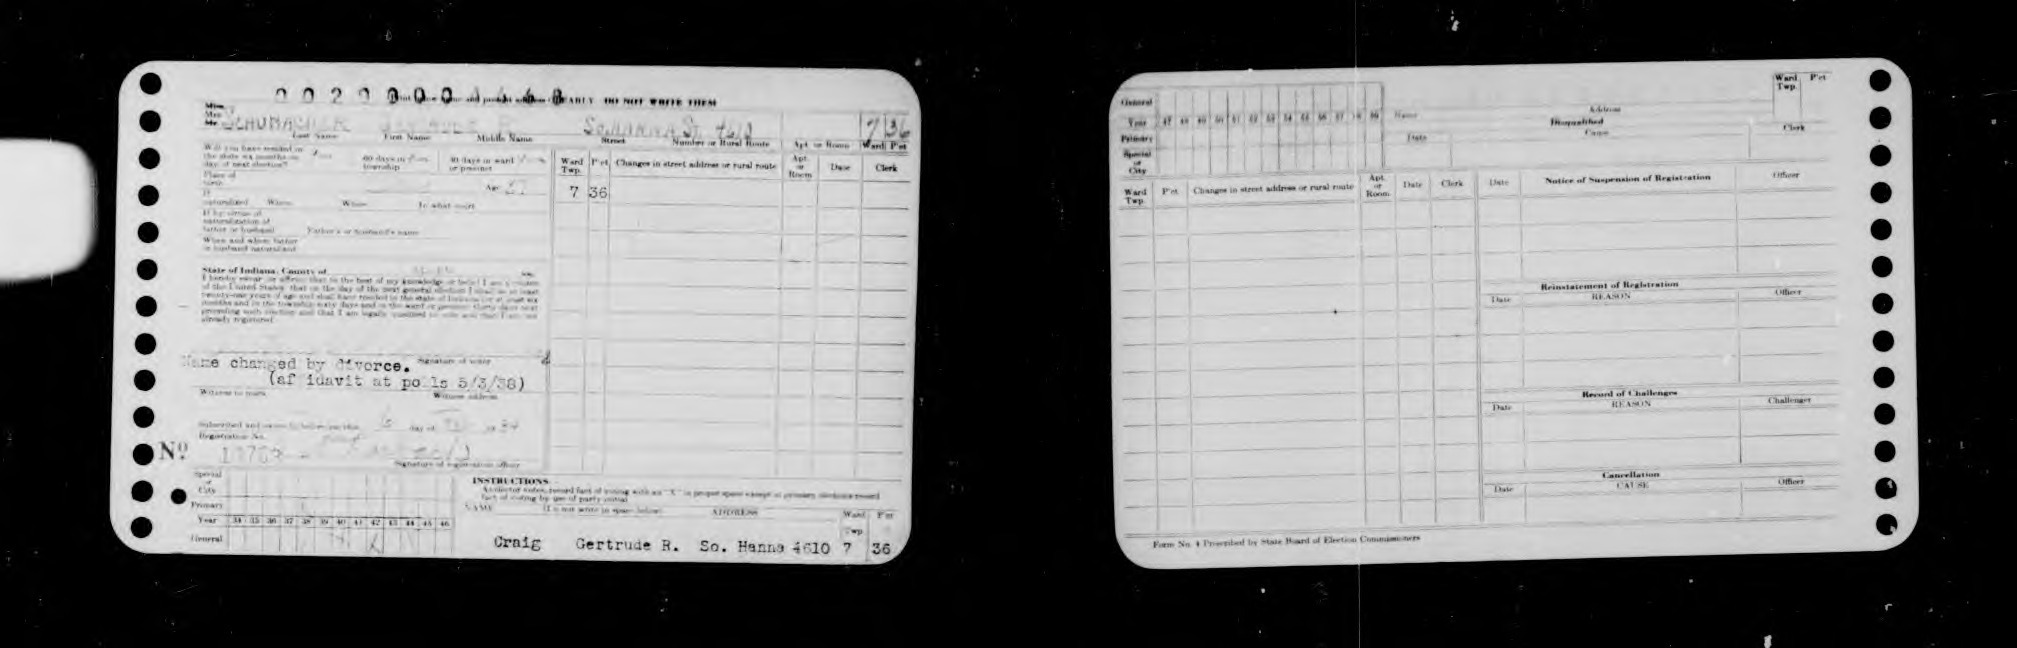 DO NOT WRITE THEM
Miss
Mrs
Mr. SCHUMACHER So. HANNA St. 4610 7 36
Last Name First Name Middle Name Street Number or Rural Route Apt. or Room Ward P'ct
Will you have resided in
the state six months on
day of next election? 60 days in township 30 days in ward or precinct
Place of birth Age
If naturalized When Where In what court
If by virtue of
naturalization of
father or husband Father's or husband's name
When and where father
or husband naturalized
State of Indiana, County of
I hereby swear or affirm that to the best of my knowledge or belief I am a citizen
of the United States, that on the day of the next general election I shall be at least
twenty-one years of age and shall have resided in the state of Indiana for at least six
months and in the township sixty days and in the ward or precinct thirty days next
preceding such election and that I am legally qualified to vote and that I am not
already registered.
Signature of voter
Name changed by divorce.
(af idavit at polls 5/3/38)
Witness to mark Witness address
Subscribed and sworn to before me this day of
Registration No.
No
Signature of registration officer
Ward Twp. P'ct Changes in street address or rural route Apt. or Room Date Clerk
7 36
Special or City
Primary
Year 34 35 36 37 38 39 40 41 42 43 44 45 46
General
INSTRUCTIONS
As elector votes, record fact of voting with an "X" in proper space except at primary elections record
fact of voting by use of party initial
NAME (Do not write in space below) ADDRESS Ward Twp P'ct
Craig Gertrude R. So. Hanna 4610 7 36
General
Year 47 48 49 50 51 52 53 54 55 56 57 58 59
Primary
Special or City
Name Address Ward Twp. P'ct
Disqualified
Date Cause Clerk
Ward Twp. P'ct Changes in street address or rural route Apt. or Room Date Clerk
Date Notice of Suspension of Registration Officer
Reinstatement of Registration
Date REASON Officer
Record of Challenges
Date REASON Challenger
Cancellation
Date CAUSE Officer
Form No. 4 Prescribed by State Board of Election Commissioners